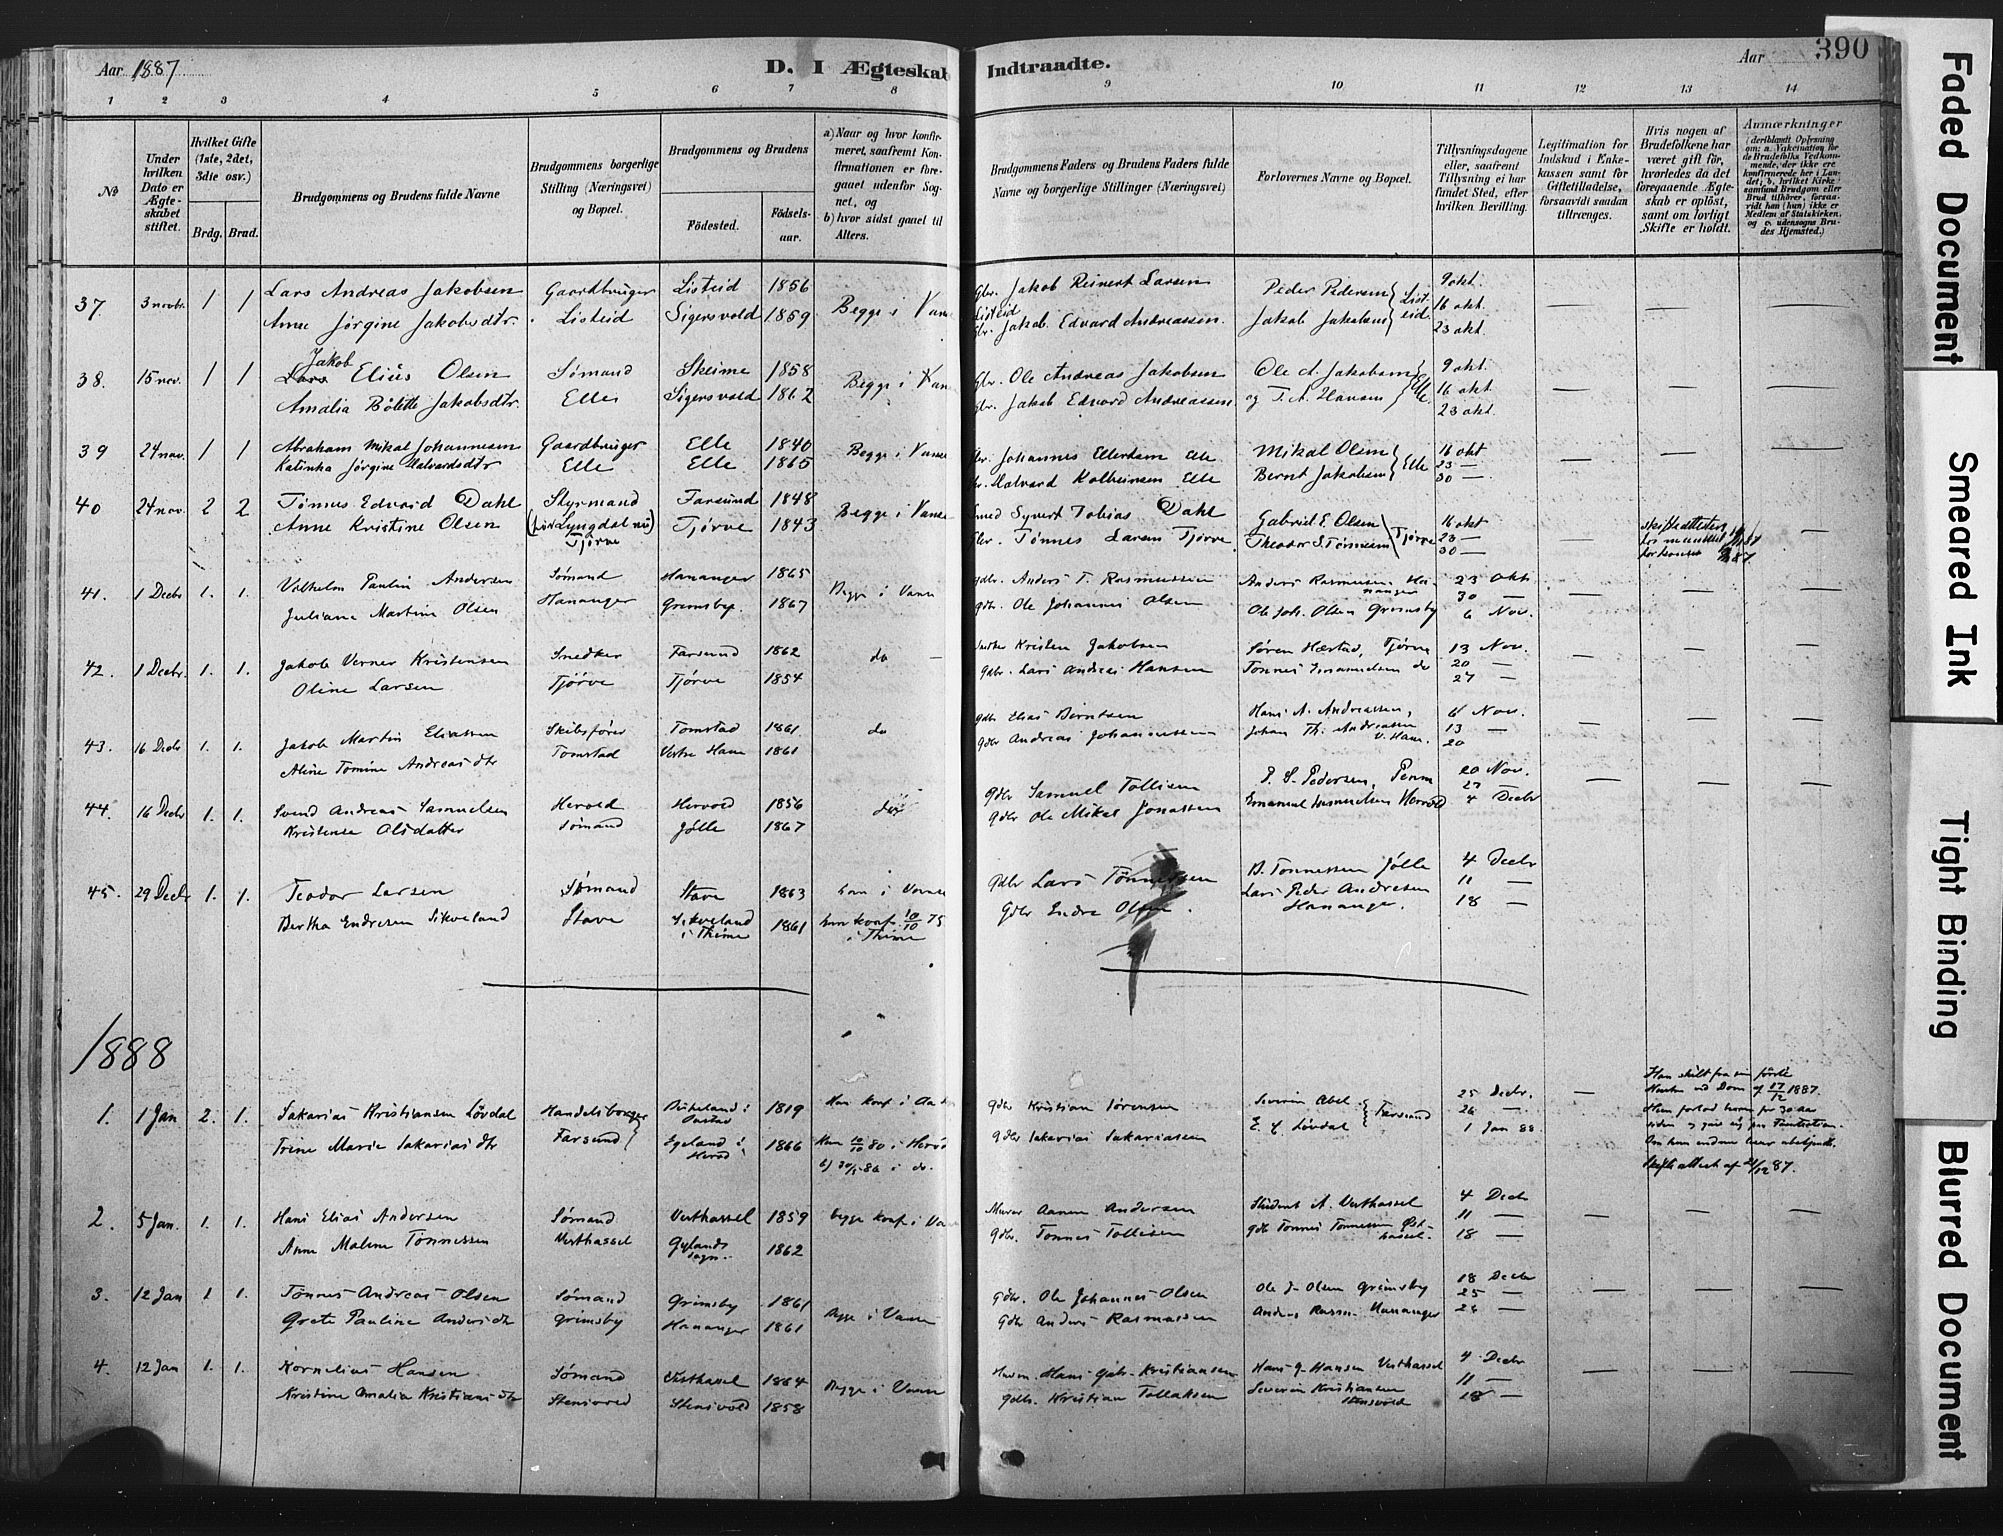 Aar 1887
D. I Ægteskab Indtraadte.
Aar
390
1 2 3 4 5 6 7 8 9 10 11 12 13 14
No
Under hvilken Dato er Ægteskabet stiftet.
Hvilket Gifte (1ste, 2det, 3die osv.)
Brdg. Brud.
Brudgommens og Brudens fulde Navne
Brudgommens borgerlige Stilling (Næringsvei) og Bopæl.
Brudgommens og Brudens
Fødested.
Fødselsaar.
a) Naar og hvor konfirmeret, saafremt Konfirmationen er foregaaet udenfor Sognet, og
b) hvor sidst gaaet til Alters.
Brudgommens Faders og Brudens Faders fulde Navne og borgerlige Stillinger (Næringsvei)
Forlovernes Navne og Bopæl.
Tillysningsdagene eller, saafremt Tillysning ei har fundet Sted, efter hvilken Bevilling.
Legitimation for Indskud i Enkekassen samt for Giftetilladelse, forsaavidt saadan tiltrænges.
Hvis nogen af Brudefolkene har været gift før, hvorledes da det foregaaende Ægteskab er opløst, samt om lovligt Skifte er holdt.
Anmærkninger
37. 3 novbr. 1 1 Lars Andreas Jakobsen Gaardbruger Listeid 1856 Begge i Vanse Gbr. Jakob Reinert Larsen Listeid Peder Pedersen 9 okt.
Anne Jørgine Jakobsdtr. Listeid Sigersvold 1859 Gbr. Jakob Edvard Andreassen. Jakob Jakobsen Listeid 16 okt
23 okt.
38. 15 nov. 1 1 Jakob Elius Olsen Sømand Skeime 1858 Begge i Vanse Gbr. Ole Andreas Jakobsen Ole A. Jakobsen 9 okt.
Amalia Bolette Jakobsdtr. Elle Sigersvold 1862 Gbr. Jakob Edvard Andreassen og T. A. Hansen Elle 16 okt.
23 okt.
39 24 nov. 1 1 Abraham Mikal Johannesen Gaardbruger Elle 1840 Begge i Vanse Gbr. Johannes Ellertsen Elle Mikal Olsen 16 okt
Katinka Jørgine Halvardsdtr Elle Elle 1865 Gbr. Halvard Kolbeinsen Elle Bernt Jakobsen Elle 23 —
30 —
40 24 nov. 2 2 Tønnes Edvard Dahl Styrmand Farsund 1848 Begge i Vanse Smed Syvert Tobias Dahl Gabriel E. Olsen 16 okt
Anne Kristine Olsen (før Lyngdal nu) Tjørve Tjørve 1843 Gbr. Tønnes Larsen Tjørve. Theodor S. Tønnesen Tjørve 23 —
30 —
41. 1 Decbr 1. 1. Vilhelm Paulin Andersen Sømand Hananger 1865 Begge i Vanse gdbr. Anders T. Rasmussen Anders Rasmussen Hananger 23 Okt
Juliane Martine Olsen Hananger Grimsby 1867 gdbr. Ole Johannes Olsen Ole Joh. Olsen Grimsby 30 —
6 Nov.
42. 1 Decbr. 1. 1. Jakob Verner Kristensen Snedker Farsund 1862 do — Kristen Jakobsen Søren Hæstad, Tjørve 13 Nov.
Oline Larsen Tjørve Tjørve 1854 gdbr. Lars Andreas Hansen Tønnes Emanuelsen do 20 —
27 —
43. 16 Decbr 1. 1. Jakob Martin Eliassen Skibsfører Tomstad 1861. do gdbr Elias Berntsen Hans A. Andreassen, 6 Nov.
Aline Tomine Andreasdtr Tomstad Vestre Have 1861 gdbr Andreas Johannessen Johan Th. Andreassen V. Have. 13 —
20
44. 16 Decbr 1. 1. Svend Andreas Samuelsen Hervold Hervold 1856 do gdbr Samuel Tollisen P. S. Pedersen, Penne 20 Nov.
Kristense Olsdatter Sømand Jølle 1867 gdbr Ole Mikal Jonassen Emanuel Samuelsen Hervold 27 —
4 Decbr
45. 29 Decbr 1. 1. Teodor Larsen Sømand Stave 1863 han i Vanse gdbr Lars Tønnessen B. Tønnessen Jølle 4 Decbr
Bertha Endresen Sikveland Stave Sikveland i Thime 1861 hun konf. 10/10 75 i Thime gdbr Endre Olsen. Lars Peder Andresen Hananger. 11 —
18 —
1888
1. 1 Jan 2. 1. Sakarias Kristiansen Løvdal Handelsborger Birkeland i 1819 Han konf i gdbr Kristian Sørensen Severin Abel 25 Decbr.
Trine Marie Sakariasdtr Farsund Egeland i Herød 1866 Hun 10/10 80 i Herød gdbr Sakarias Sakariassen E. C. Løvdal Farsund 26 —
1 Jan 88
Han skilt fra sin første Hustru ved Dom af 17/12 1887.
Hun forlod ham for 30 aar siden
Skifteattest af 21/12 87.
2. 5 Jan. 1. 1. Hans Elias Andersen Sømand Vesthassel 1859 begge konf i Vanse Murer Aanen Andersen Student A. Vesthassel 4 Decbr
Anne Malene Tønnessen Vesthassel Gylands sogn. 1862 gdbr. Tønnes Tollisen gdb Tønnes Tønnessen Østhassel. 11 —
18 —
3. 12 Jan 1. 1. Tønnes Andreas Olsen Sømand Grimsby 1861 Begge i Vanse gdbr. Ole Johannes Olsen Ole J. Olsen Grimsby 18 Decbr
Grete Pauline Andersdtr Grimsby Hananger 1861 gdbr Anders Rasmussen Anders Rasm. Hananger 25 —
26 —
4. 12 Jan 1. 1. Kornelius Hansen Sømand Vesthassel 1864 Begge i Vanse Husm. Hans Gabr. Kristiansen Hans G. Hansen Vesthassel 4 Decbr
Kristine Amalia Kristiansdtr Stensvold Stensvold 1858 gdbr. Kristian Tollaksen Severin Kristiansen Stensvold 11 —
18 —
Faded Document
Smeared Ink
Tight Binding
Blurred Document